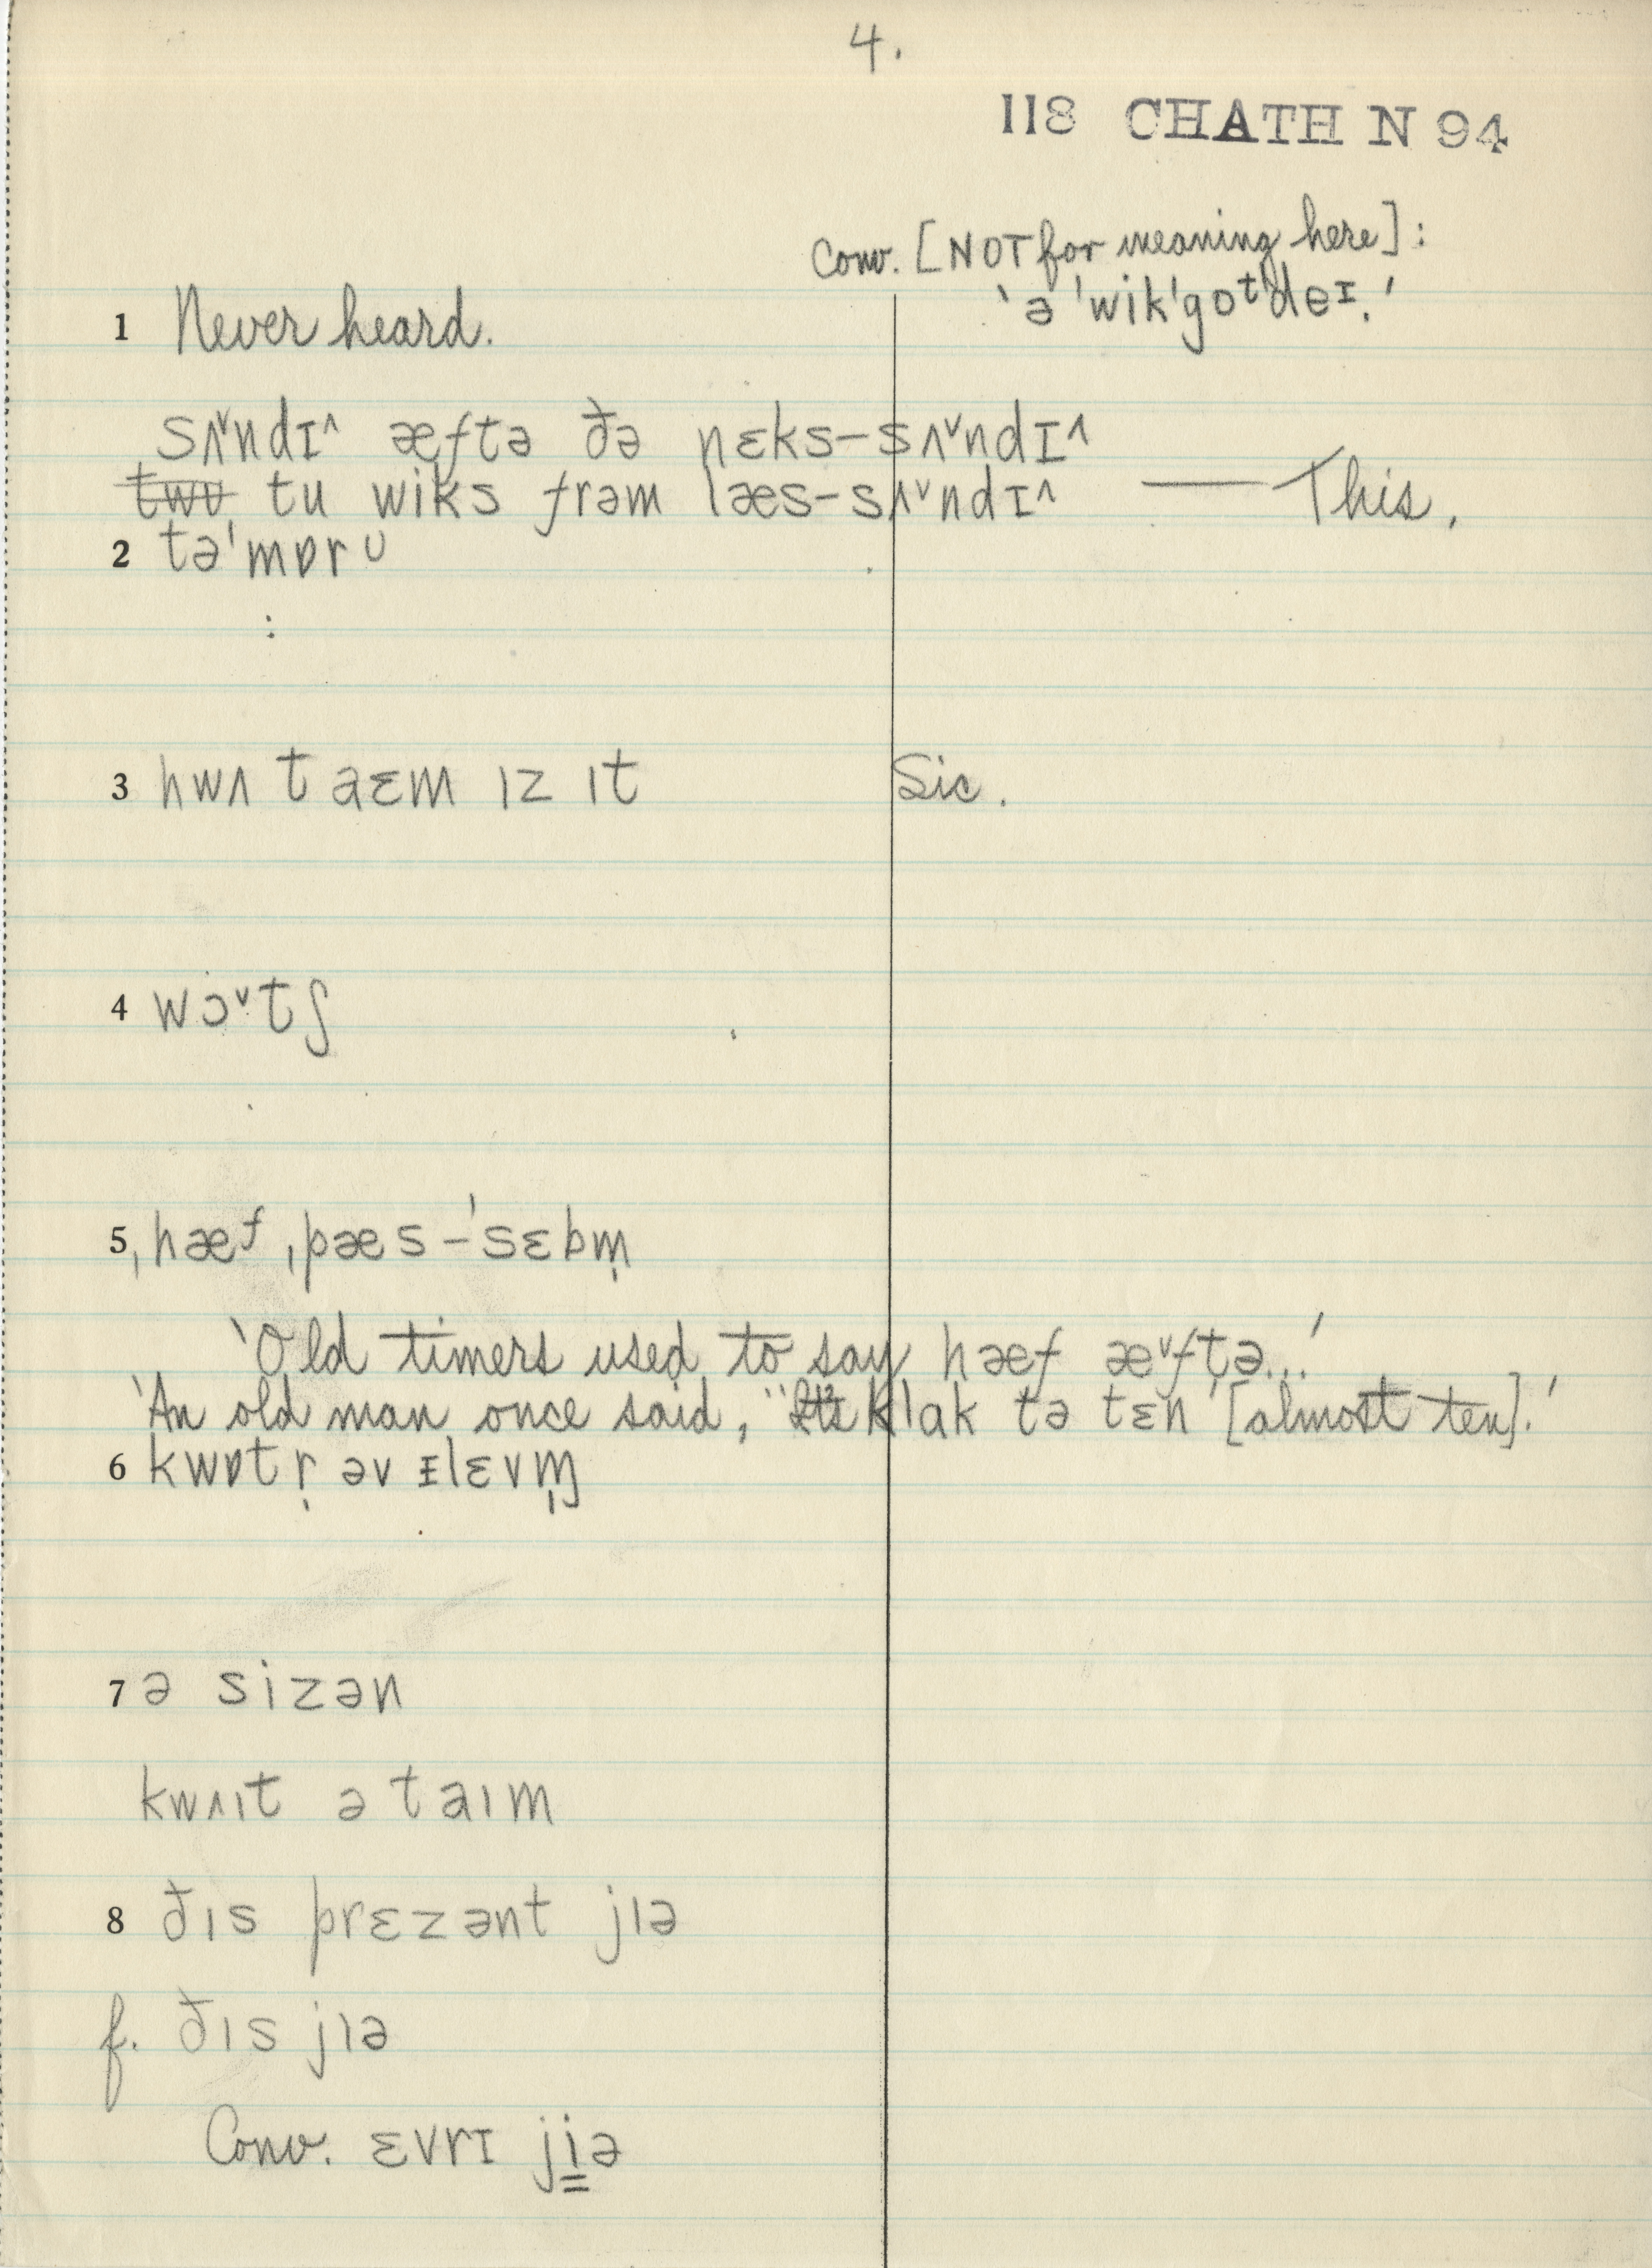 4.
118 CHATH N 94
Conv. [NOT for meaning here]:
'ə ˈwikˈgoᵗˈdeɪ.'
1 Never heard.
sʌ˅ndɪ˄ æftə ðə nɛks–sʌ˅ndɪ˄
tu wiks frəm læs–sʌ˅ndɪ˄ — This.
2 təˈmɒrᴜ
3 hwʌ t aɛm ɪz ɪt Sic.
4 wɔ˅tʃ
5 ˌhæf ˌpæs–ˈsɛbm̩
'Old timers used to say hæf æ˅ftə...'
'An old man once said, "klak tə tɛn' [almost ten].'
6 kwɒtr̩ əv ɪlɛvɱ̩
7 ə sizən
kwʌɪt ə taɪm
8 ðɪs prɛzənt jɪə
f. ðɪs jɪə
Conv. ɛvrɪ jiə